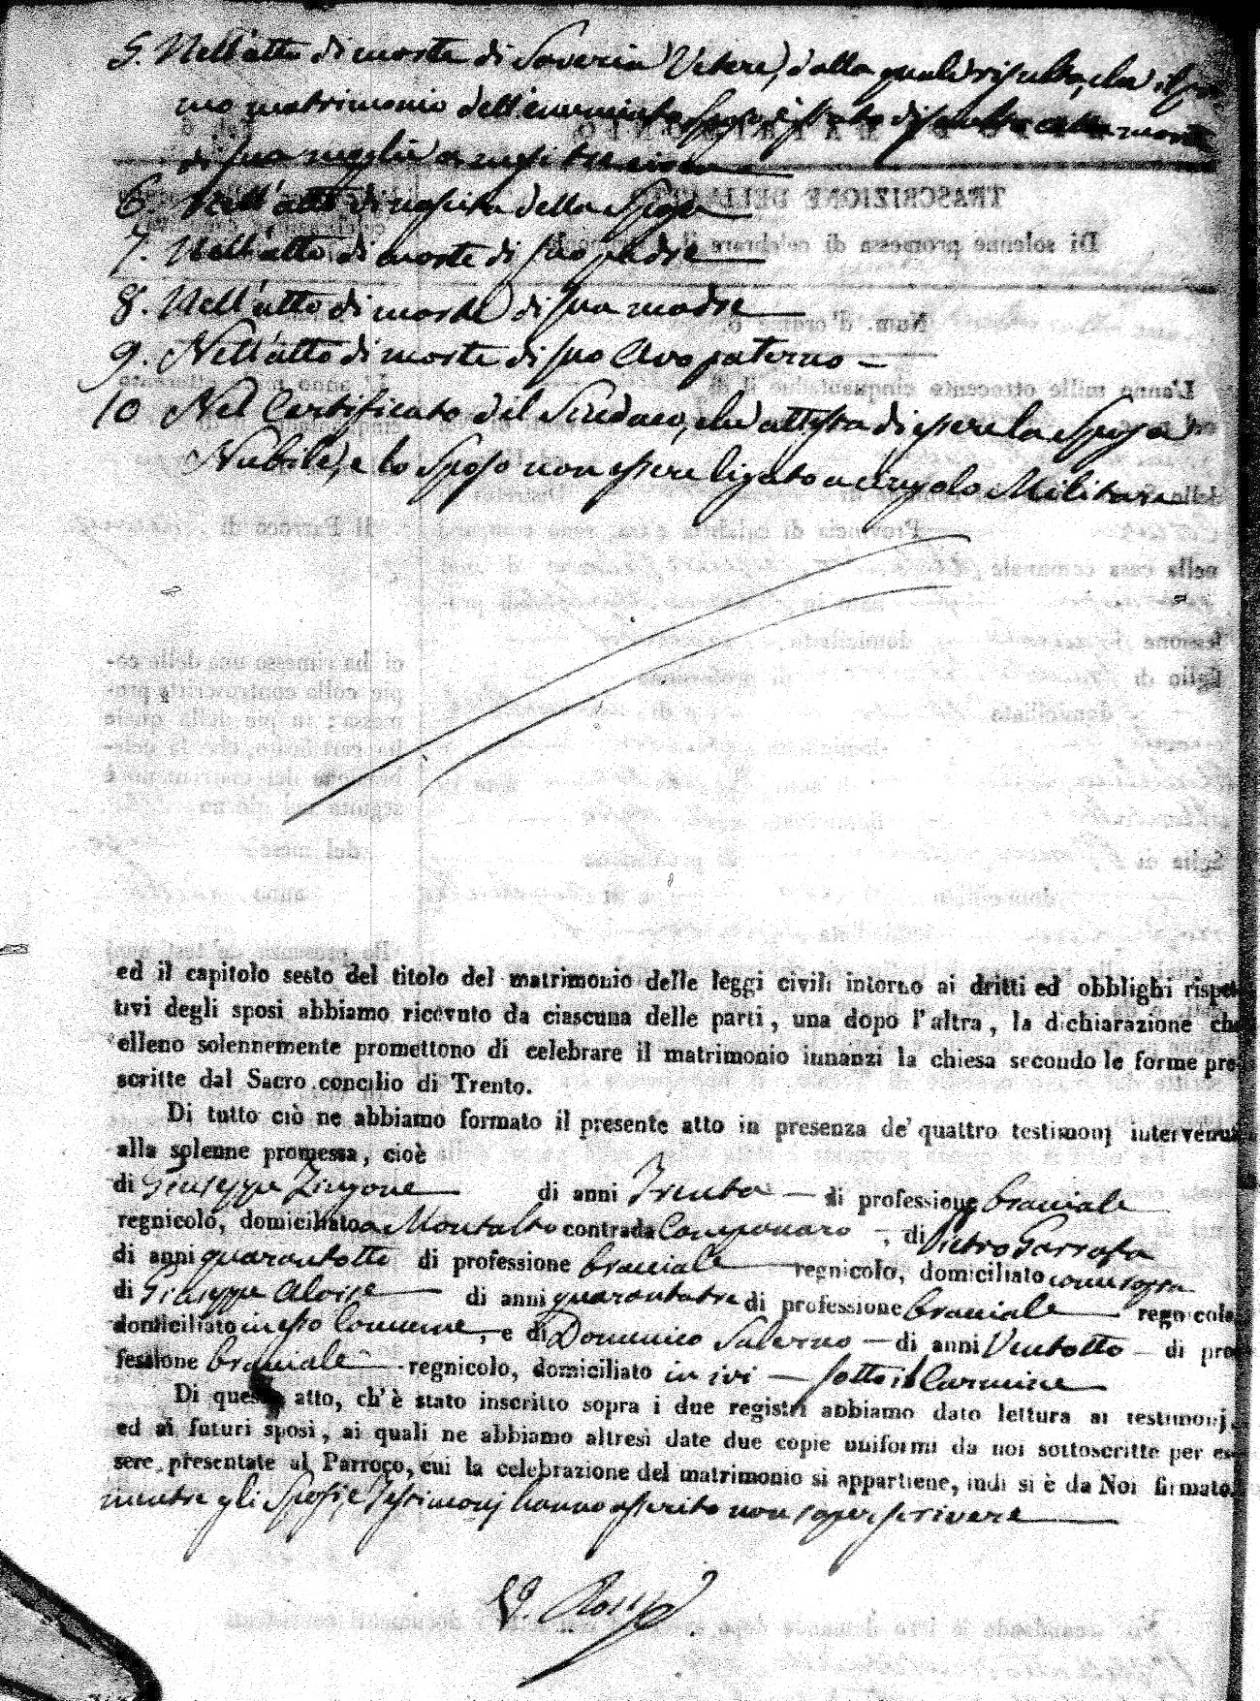 5. Nell'atto di morte di Saveria Vetere, dalla quale risulta, che il pri
mo matrimonio dell'enunciato Sposo è stato disciolto colla morte
di sua moglie
6. Nell'atto di nascita della Sposa
7. Nell'atto di morte di suo padre
8. Nell'atto di morte di sua madre
9. Nell'atto di morte di suo Avo paterno
10 Nel Certificato del Sindaco, che attesta di essere la Sposa
Nubile, e lo Sposo non essere ligato a cingolo Militare
ed il capitolo sesto del titolo del matrimonio delle leggi civili intorno ai dritti ed obblighi rispet
tivi degli sposi abbiamo ricevuto da ciascuna delle parti, una dopo l'altra, la dichiarazione che
elleno solennemente promettono di celebrare il matrimonio innanzi la chiesa secondo le forme pre
scritte dal Sacro concilio di Trento.
Di tutto ciò ne abbiamo formato il presente atto in presenza de' quattro testimonj intervenuti
alla solenne promessa, cioè
di Giuseppe Zingone di anni Trenta di professione bracciale
regnicolo, domiciliato a Montalto contrada , di Pietro Garrafa
di anni quarantotto di professione bracciale regnicolo, domiciliato come sopra
di Giuseppe Aloise di anni quarantatre di professione bracciale regnicolo
domiciliato in esso Comune, e di Domenico Salerno di anni Ventotto di pro
fessione bracciale regnicolo, domiciliato in ivi sotto il Carmine
Di questo atto, ch'è stato inscritto sopra i due registri abbiamo dato lettura ai testimonj
ed ai futuri sposi, ai quali ne abbiamo altresì date due copie uniformi da noi sottoscritte per es
sere presentate al Parroco, cui la celebrazione del matrimonio si appartiene, indi si è da Noi firmato
mentre gli Sposi, e Testimonj hanno asserito non saper scrivere